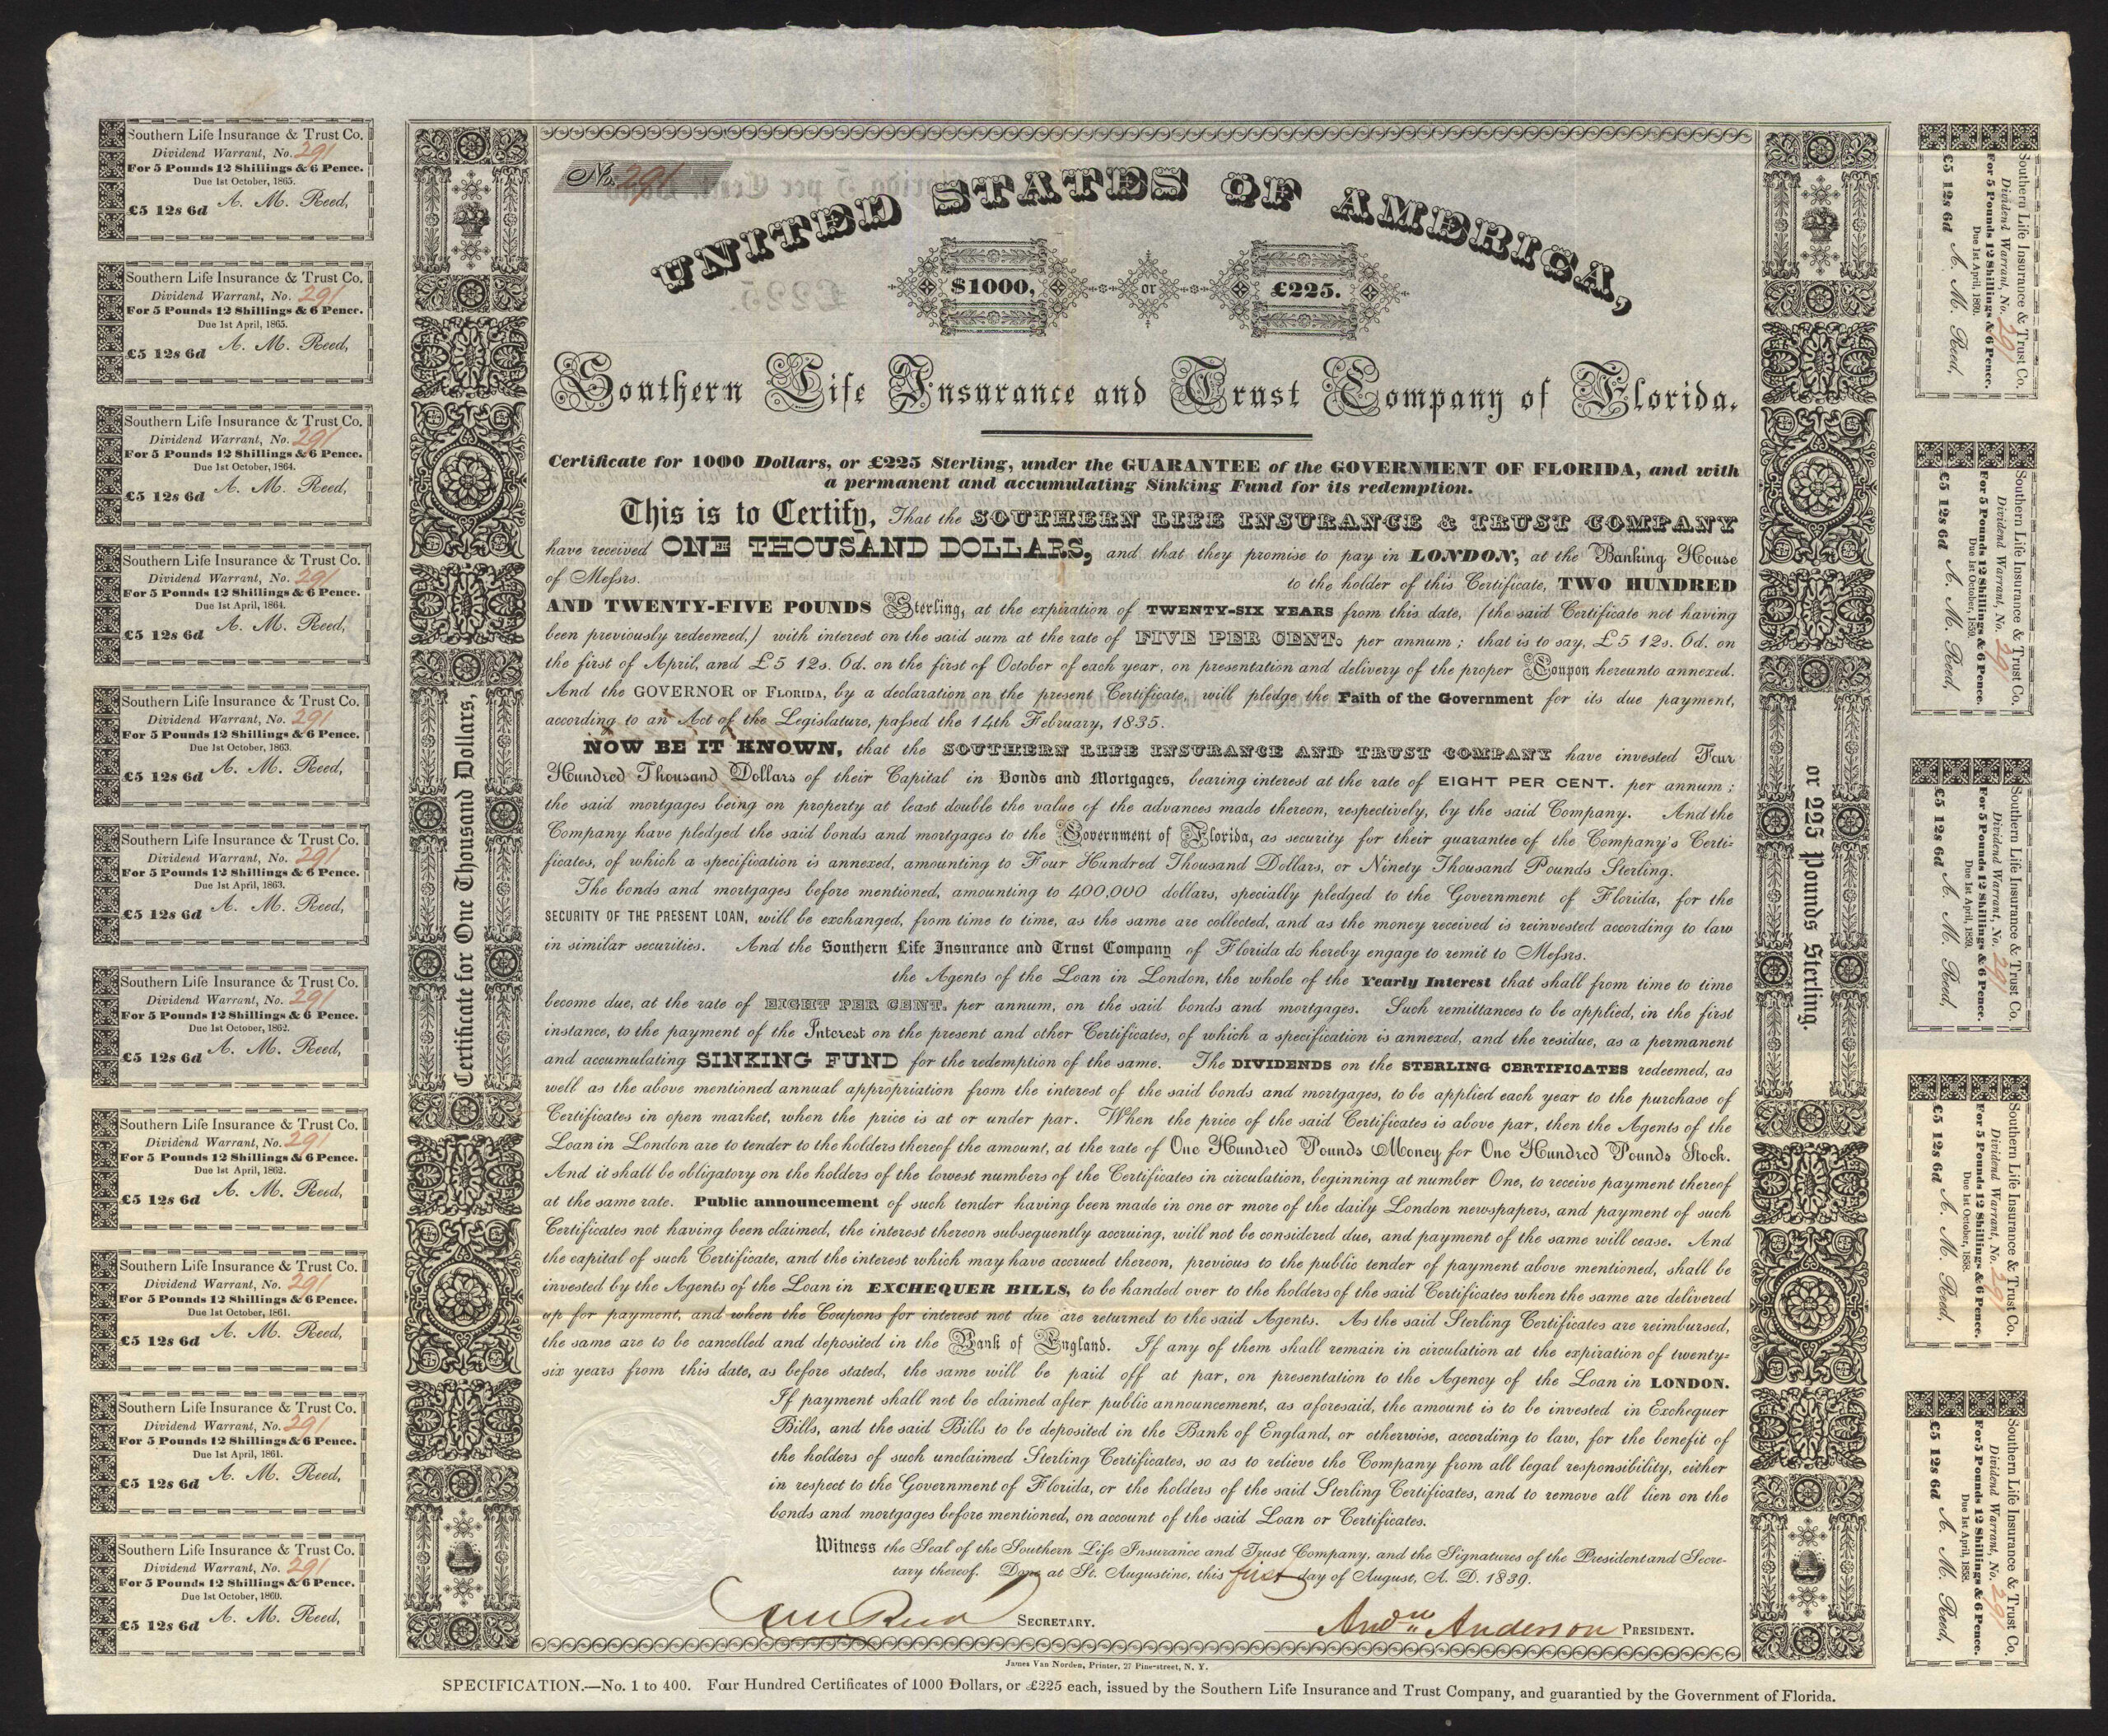 Southern Life Insurance & Trust Co.
Dividend Warrant, No. 291
For 5 Pounds 12 Shillings & 6 Pence.
Due 1st October, 1865.
£5 12s 6d A. M. Reed,
Southern Life Insurance & Trust Co.
Dividend Warrant, No. 291
For 5 Pounds 12 Shillings & 6 Pence.
Due 1st April, 1865.
£5 12s 6d A. M. Reed,
Southern Life Insurance & Trust Co.
Dividend Warrant, No. 291
For 5 Pounds 12 Shillings & 6 Pence.
Due 1st October, 1864.
£5 12s 6d A. M. Reed,
Southern Life Insurance & Trust Co.
Dividend Warrant, No. 291
For 5 Pounds 12 Shillings & 6 Pence.
Due 1st April, 1864.
£5 12s 6d A. M. Reed,
Southern Life Insurance & Trust Co.
Dividend Warrant, No. 291
For 5 Pounds 12 Shillings & 6 Pence.
Due 1st October, 1863.
£5 12s 6d A. M. Reed,
Southern Life Insurance & Trust Co.
Dividend Warrant, No. 291
For 5 Pounds 12 Shillings & 6 Pence.
Due 1st April, 1863.
£5 12s 6d A. M. Reed,
Southern Life Insurance & Trust Co.
Dividend Warrant, No. 291
For 5 Pounds 12 Shillings & 6 Pence.
Due 1st October, 1862.
£5 12s 6d A. M. Reed,
Southern Life Insurance & Trust Co.
Dividend Warrant, No. 291
For 5 Pounds 12 Shillings & 6 Pence.
Due 1st April, 1862.
£5 12s 6d A. M. Reed,
Southern Life Insurance & Trust Co.
Dividend Warrant, No. 291
For 5 Pounds 12 Shillings & 6 Pence.
Due 1st October, 1861.
£5 12s 6d A. M. Reed,
Southern Life Insurance & Trust Co.
Dividend Warrant, No. 291
For 5 Pounds 12 Shillings & 6 Pence.
Due 1st April, 1861.
£5 12s 6d A. M. Reed,
Southern Life Insurance & Trust Co.
Dividend Warrant, No. 291
For 5 Pounds 12 Shillings & 6 Pence.
Due 1st October, 1860.
£5 12s 6d A. M. Reed,
Certificate for One Thousand Dollars,
No. 291
UNITED STATES OF AMERICA,
$1000, or £225.
Southern Life Insurance and Trust Company of Florida.
Certificate for 1000 Dollars, or £225 Sterling, under the GUARANTEE of the GOVERNMENT OF FLORIDA, and with
a permanent and accumulating Sinking Fund for its redemption.
This is to Certify, That the SOUTHERN LIFE INSURANCE & TRUST COMPANY
have received ONE THOUSAND DOLLARS, and that they promise to pay in LONDON, at the Banking House
of Messrs. to the holder of this Certificate, TWO HUNDRED
AND TWENTY-FIVE POUNDS Sterling, at the expiration of TWENTY-SIX YEARS from this date, (the said Certificate not having
been previously redeemed,) with interest on the said sum at the rate of FIVE PER CENT. per annum; that is to say, £5 12s. 6d. on
the first of April, and £5 12s. 6d. on the first of October of each year, on presentation and delivery of the proper Coupon hereunto annexed.
And the GOVERNOR OF FLORIDA, by a declaration on the present Certificate, will pledge the Faith of the Government for its due payment,
according to an Act of the Legislature, passed the 14th February, 1835.
NOW BE IT KNOWN, that the SOUTHERN LIFE INSURANCE AND TRUST COMPANY have invested Four
Hundred Thousand Dollars of their Capital in Bonds and Mortgages, bearing interest at the rate of EIGHT PER CENT. per annum;
the said mortgages being on property at least double the value of the advances made thereon, respectively, by the said Company. And the
Company have pledged the said bonds and mortgages to the Government of Florida, as security for their guarantee of the Company's Certi-
ficates, of which a specification is annexed, amounting to Four Hundred Thousand Dollars, or Ninety Thousand Pounds Sterling.
The bonds and mortgages before mentioned, amounting to 400,000 dollars, specially pledged to the Government of Florida, for the
SECURITY OF THE PRESENT LOAN, will be exchanged, from time to time, as the same are collected, and as the money received is reinvested according to law
in similar securities. And the Southern Life Insurance and Trust Company of Florida do hereby engage to remit to Messrs.
the Agents of the Loan in London, the whole of the Yearly Interest that shall from time to time
become due, at the rate of EIGHT PER CENT. per annum, on the said bonds and mortgages. Such remittances to be applied, in the first
instance, to the payment of the Interest on the present and other Certificates, of which a specification is annexed, and the residue, as a permanent
and accumulating SINKING FUND for the redemption of the same. The DIVIDENDS on the STERLING CERTIFICATES redeemed, as
well as the above mentioned annual appropriation from the interest of the said bonds and mortgages, to be applied each year to the purchase of
Certificates in open market, when the price is at or under par. When the price of the said Certificates is above par, then the Agents of the
Loan in London are to tender to the holders thereof the amount, at the rate of One Hundred Pounds Money for One Hundred Pounds Stock.
And it shall be obligatory on the holders of the lowest numbers of the Certificates in circulation, beginning at number One, to receive payment thereof
at the same rate. Public announcement of such tender having been made in one or more of the daily London newspapers, and payment of such
Certificates not having been claimed, the interest thereon subsequently accruing, will not be considered due, and payment of the same will cease. And
the capital of such Certificate, and the interest which may have accrued thereon, previous to the public tender of payment above mentioned, shall be
invested by the Agents of the Loan in EXCHEQUER BILLS, to be handed over to the holders of the said Certificates when the same are delivered
up for payment, and when the Coupons for interest not due are returned to the said Agents. As the said Sterling Certificates are reimbursed,
the same are to be cancelled and deposited in the Bank of England. If any of them shall remain in circulation at the expiration of twenty-
six years from this date, as before stated, the same will be paid off at par, on presentation to the Agency of the Loan in LONDON.
If payment shall not be claimed after public announcement, as aforesaid, the amount is to be invested in Exchequer
Bills, and the said Bills to be deposited in the Bank of England, or otherwise, according to law, for the benefit of
the holders of such unclaimed Sterling Certificates, so as to relieve the Company from all legal responsibility, either
in respect to the Government of Florida, or the holders of the said Sterling Certificates, and to remove all lien on the
bonds and mortgages before mentioned, on account of the said Loan or Certificates.
Witness the Seal of the Southern Life Insurance and Trust Company, and the Signatures of the President and Secre-
tary thereof. Done at St. Augustine, this first day of August, A. D. 1839.
A M Reed SECRETARY. Andw Anderson PRESIDENT.
James Van Norden, Printer, 27 Pine-street, N. Y.
SPECIFICATION.—No. 1 to 400. Four Hundred Certificates of 1000 Dollars, or £225 each, issued by the Southern Life Insurance and Trust Company, and guarantied by the Government of Florida.
or 225 Pounds Sterling.
Southern Life Insurance & Trust Co.
Dividend Warrant, No. 291
For 5 Pounds 12 Shillings & 6 Pence.
Due 1st April, 1860.
£5 12s 6d A. M. Reed,
Southern Life Insurance & Trust Co.
Dividend Warrant, No. 291
For 5 Pounds 12 Shillings & 6 Pence.
Due 1st October, 1859.
£5 12s 6d A. M. Reed,
Southern Life Insurance & Trust Co.
Dividend Warrant, No. 291
For 5 Pounds 12 Shillings & 6 Pence.
Due 1st April, 1859.
£5 12s 6d A. M. Reed,
Southern Life Insurance & Trust Co.
Dividend Warrant, No. 291
For 5 Pounds 12 Shillings & 6 Pence.
Due 1st October, 1858.
£5 12s 6d A. M. Reed,
Southern Life Insurance & Trust Co.
Dividend Warrant, No. 291
For 5 Pounds 12 Shillings & 6 Pence.
Due 1st April, 1858.
£5 12s 6d A. M. Reed,